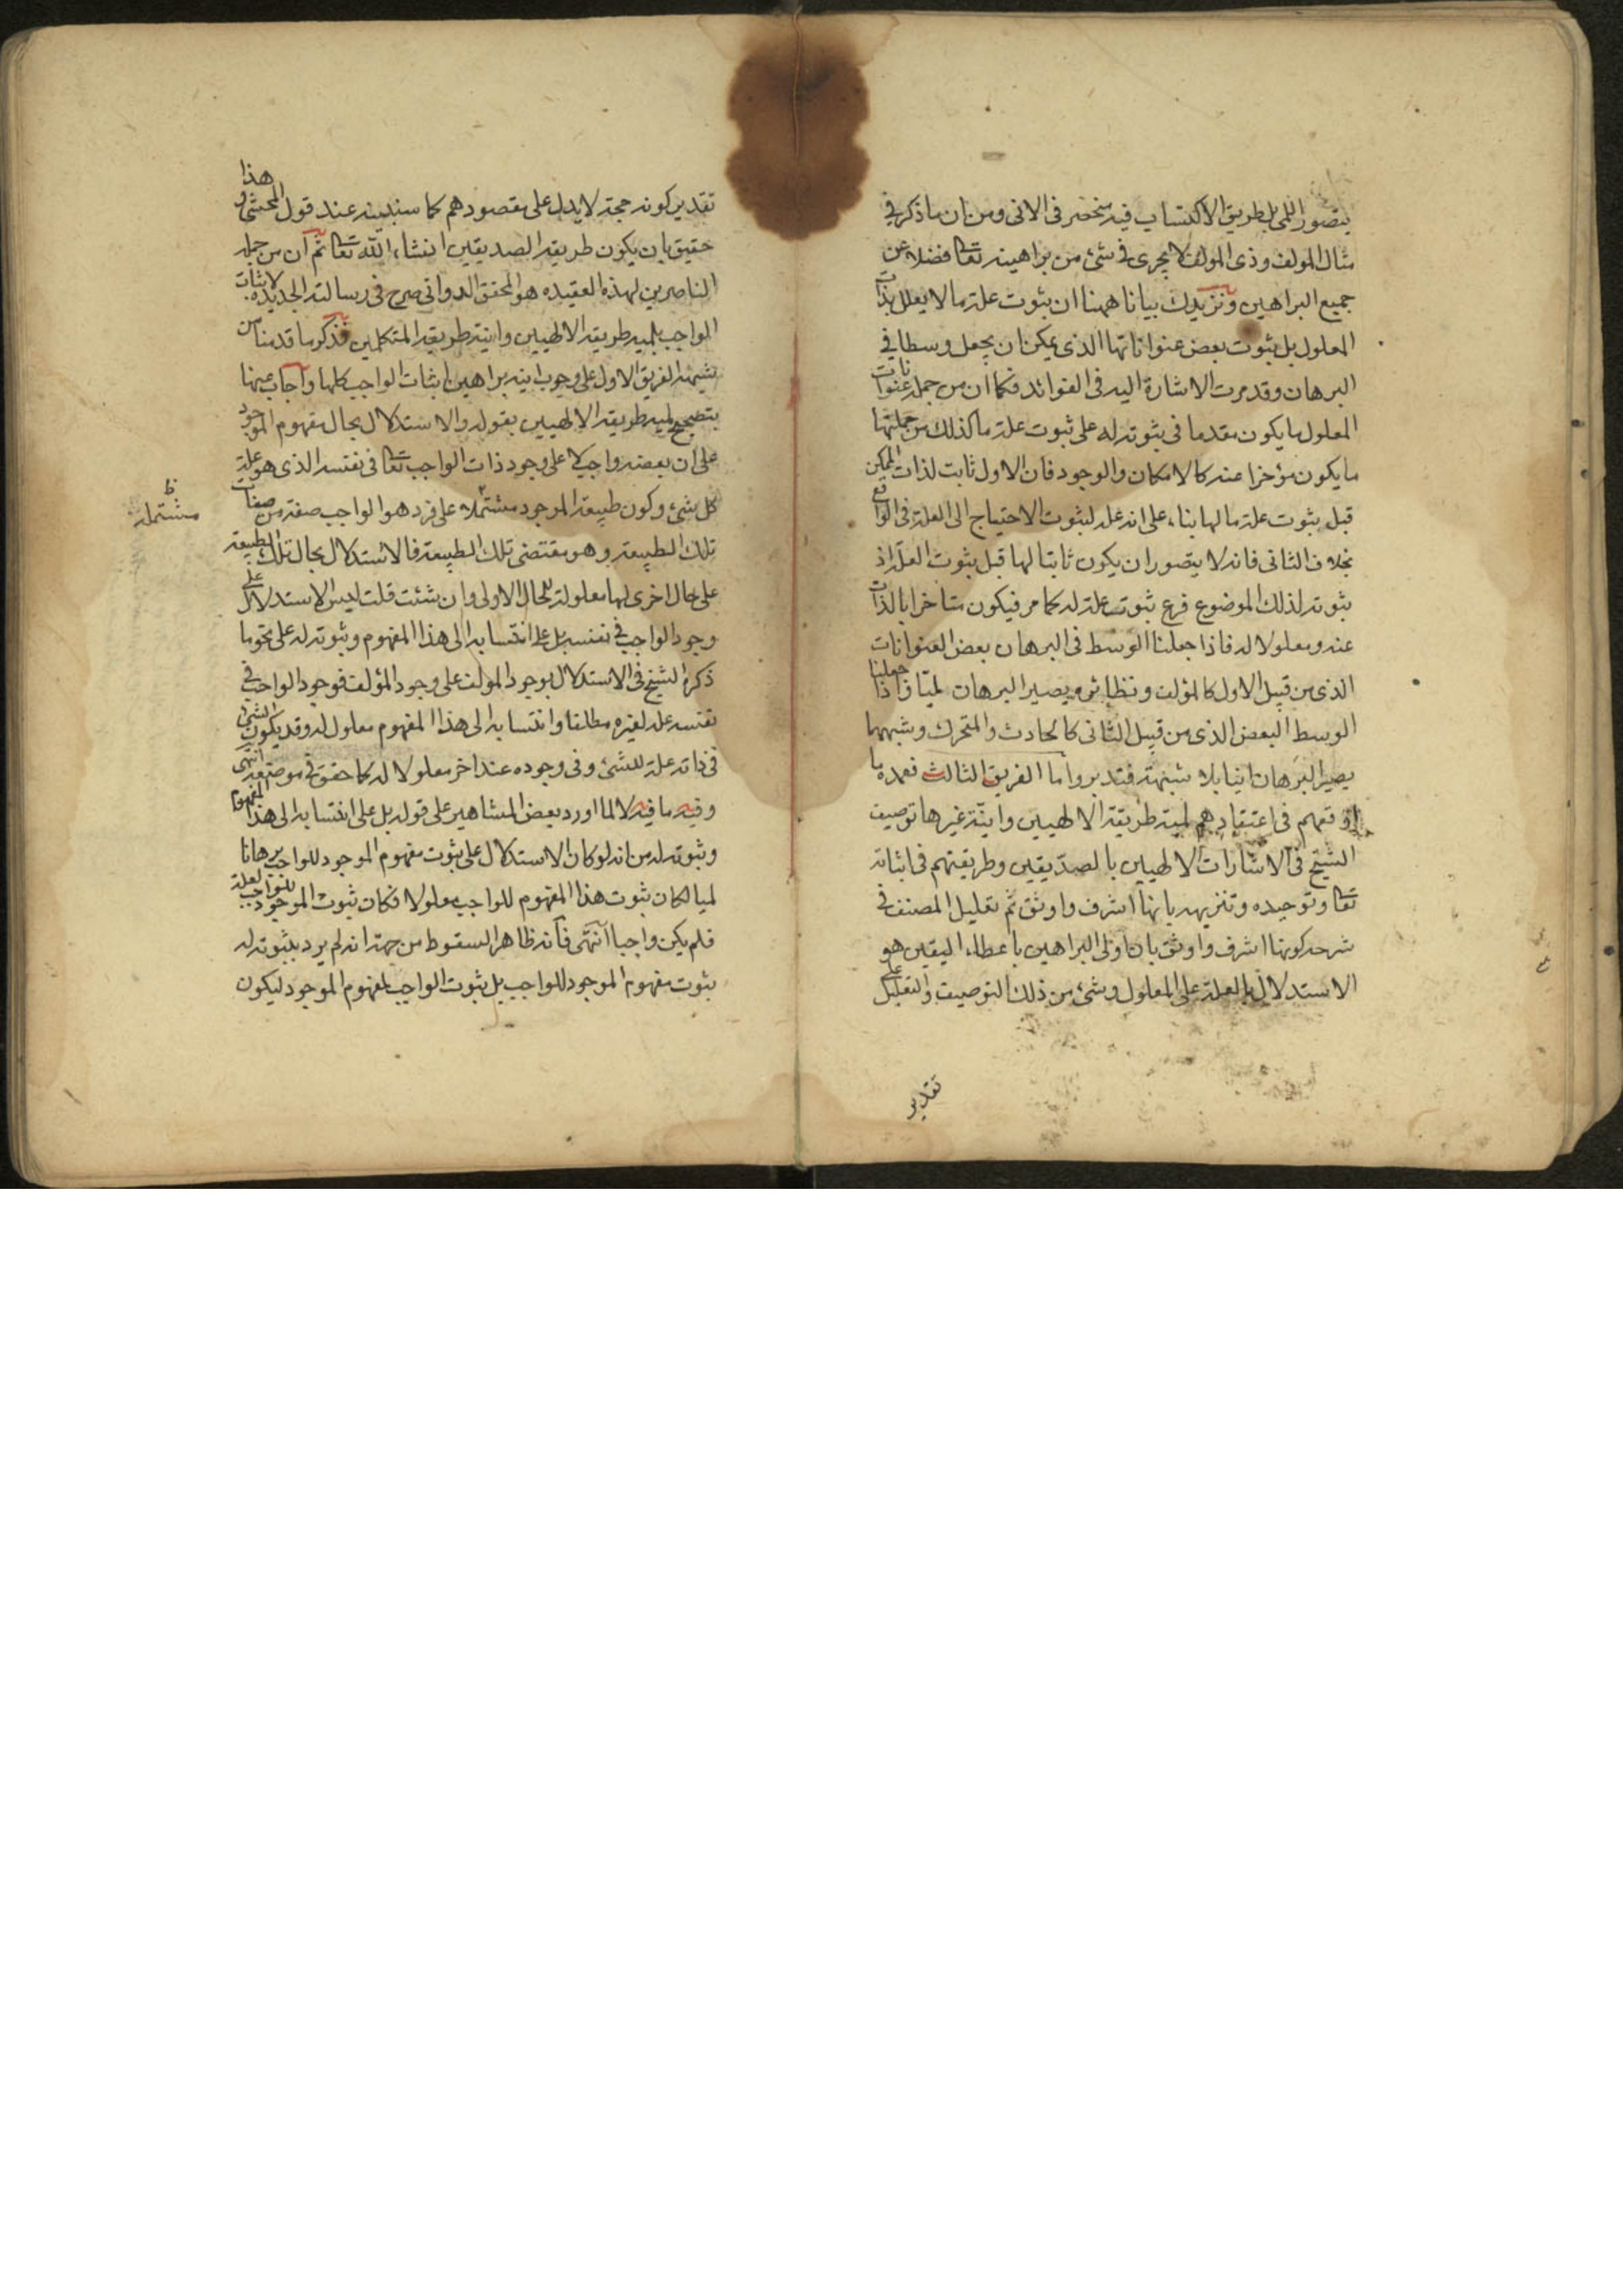 يتصور اللمى بل طريق الاكتساب فيه منحصر فى الانى ومن ان ما ذكر فى
مثال المولف وذى المولف لا يجرى فى شئ من براهينه تعا فضلا عن
جميع البراهين ونزيدك بيانا ههنا ان ثبوت علة ما لا يعلل بذات
المعلول بل بثبوت بعض عنواناتها الذى يمكن ان يجعل وسطا فى
البرهان وقد مرت الاشارة اليه فى الفوائد فكما ان من جملة عنوانات
المعلول ما يكون مقدما فى ثبوته له على ثبوت علة ما كذلك من جملتها
ما يكون مؤخرا عنه كالامكان والوجود فان الاول ثابت لذات الممكن
قبل ثبوت علة ما لها بناء على انه علة لثبوت الاحتياج الى العلة فى الواقع
بخلاف الثانى فانه لا يتصور ان يكون ثابتا لها قبل ثبوت العلة اذ
ثبوته لذلك الموضوع فرع ثبوت علة له كما مر فيكون متاخرا بالذات
عنه ومعلولا له فاذا جعلنا الوسط فى البرهان بعض العنوانات
الذى من قبيل الاول كالمؤلف ونظائره يصير البرهان لميا واذا جعلنا
الوسط البعض الذى من قبيل الثانى كالحادث والمتحرك وشبههما
يصير البرهان انيا بلا شبهة فتدبر واما الفريق الثالث فعمدة ما
اوقعهم فى اعتقادهم لمية طريقة الالهيين وانية غيرها توصيف
الشيخ فى الاشارات الالهيين بالصديقين وطريقتهم فى اثباته
تعا وتوحيده وتنزيهه بانها اشرف واوثق ثم تعليل المصنف فى
شرحه كونها اشرف واوثق بان اولى البراهين باعطاء اليقين هو
الاستدلال بالعلة على المعلول وشئ من ذلك التوصيف والتعليل على
تقدير
تقدير كونه حجة لا يدل على مقصودهم كما سنبينه عند قول المحشى وهذا
حقيق بان يكون طريقة الصديقين انشاء الله تعا ثم ان من جملة
الناصرين لهذه العقيده هو المحقق الدوانى صرح فى رسالته الجديده لاثبات
الواجب بلمية طريقة الالهيين وانية طريقة المتكلمين فذكر ما قدمنا من
شبهة الفريق الاول على وجوب انية براهين اثبات الواجب كلها واجاب عنها
بتصحيح لمية طريقة الالهيين بقوله والاستدلال بحال مفهوم الموجود
على ان بعضه واجب لا على وجود ذات الواجب تعا فى نفسه الذى هو علة
كل شئ وكون طبيعة الموجود مشتملا على فرد هو الواجب صفة من صفات
تلك الطبيعة وهو مقتضى تلك الطبيعة فالاستدلال بحال تلك الطبيعة
على حال اخرى لها معلولة للحال الاولى وان شئت قلت ليس الاستدلال على
وجود الواجب فى نفسه بل على انتسابه الى هذا المفهوم وثبوته له على نحو ما
ذكره الشيخ فى الاستدلال بوجود المولف على وجود المؤلف فوجود الواجب فى
نفسه علة لغيره مطلقا وانتسابه الى هذا المفهوم معلول له وقد يكون الشئ
فى ذاته علة للشئ وفى وجوده عند اخر معلولا له كما حقق فى موضعه انتهى
وفيه ما فيه لا لما اورد بعض المشاهير على قوله بل على انتسابه الى هذا المفهوم
وثبوته له من انه لو كان الاستدلال على ثبوت مفهوم الموجود للواجب برهانا
لميا لكان ثبوت هذا المفهوم للواجب معلولا فكان ثبوت الموجود للواجب لعلة
فلم يكن واجبا انتهى فانه ظاهر السقوط من جهة انه لم يرد بثبوته له
ثبوت مفهوم الموجود للواجب بل ثبوت الواجب لمفهوم الموجود ليكون
ظ
مشتملة